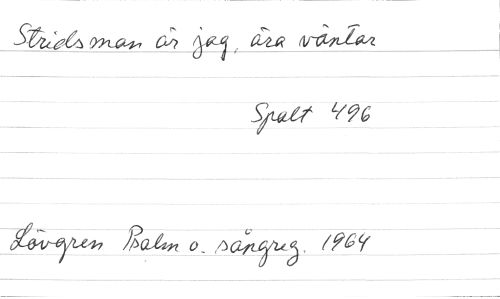 Stridsman är jag, ära väntar
Spalt 496
Lövgren Psalm o. sångreg. 1964